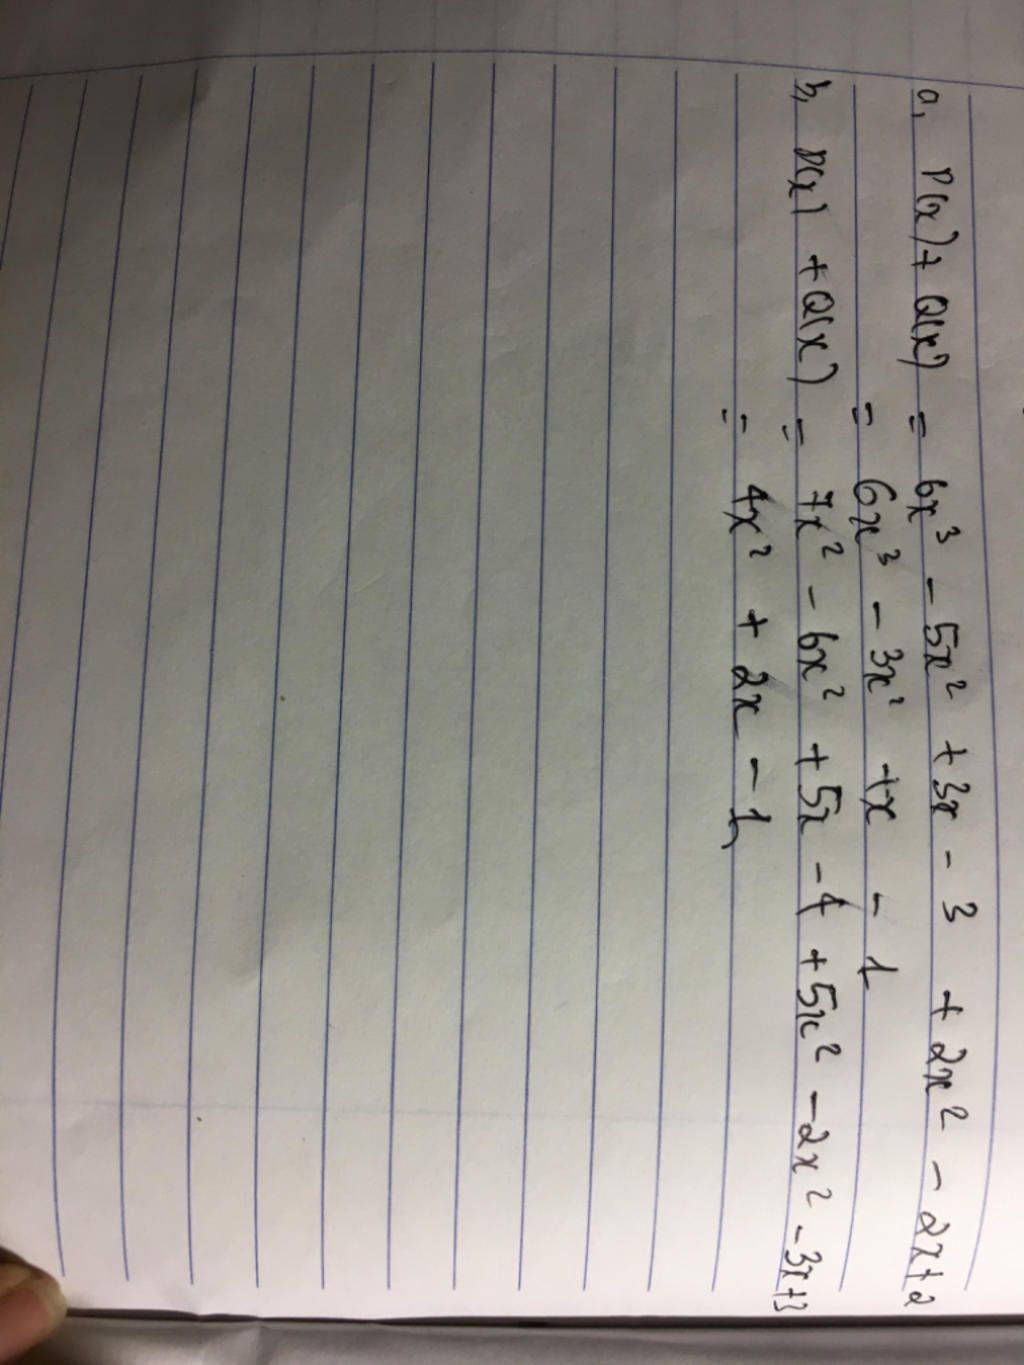 a, P(x) + Q(x) = 6x³ - 5x² + 3x - 3 + 2x² - 2x + 2
= 6x³ - 3x² + x - 1
b, P(x) + Q(x) = 7x² - 6x² + 5x - 4 + 5x² - 2x² - 3x + 3
= 4x² + 2x - 1